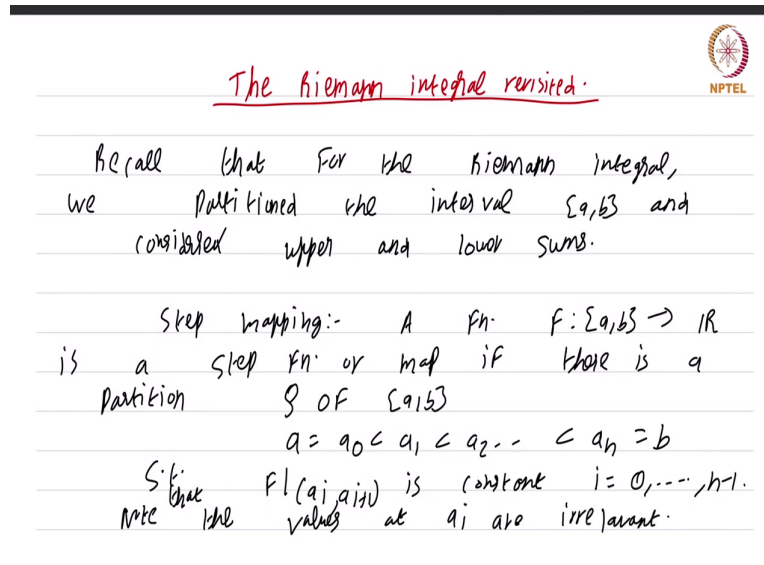 The Riemann integral revisited.
NPTEL
Recall that for the Riemann integral,
we partitioned the interval [a,b] and
considered upper and lower sums.
Step mapping:- A Fn. F : [a,b] → IR
is a step Fn. or map if there is a
Partition P of [a,b]
a = a0 < a1 < a2.. < an = b
S.t. F|(ai, ai+1) is constant i = 0,----, n-1.
Note that the values at ai are irrelavant.